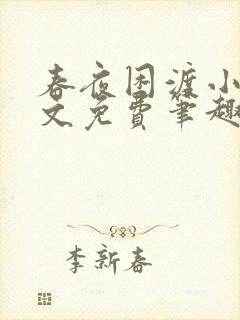 春夜困渡小
文免费笔趣
李新春